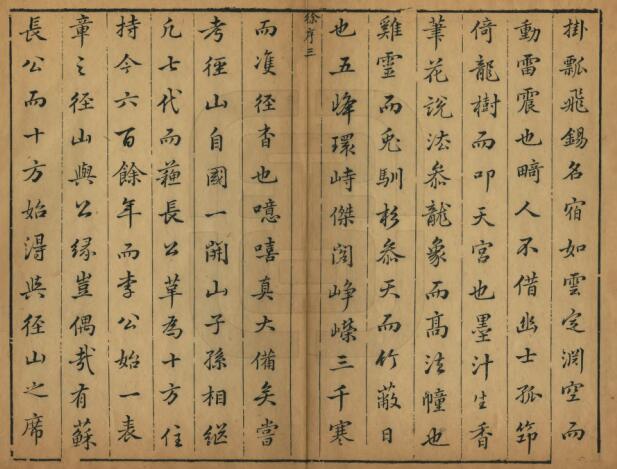 掛瓢飛錫名宿如雲定淵空而
動雷震也畸人不借幽士孤筇
倚龍樹而叩天宮也墨汁生香
筆花說法參龍象而髙法幢也
雞靈而兎馴杉參天而竹蔽日
也五峰環峙傑閣崢嶸三千寒
徐序三
而凌徑杳也噫嘻真大備矣嘗
考徑山自國一開山子孫相継
凢七代而蘓長公革為十方住
持今六百餘年而李公始一表
章之徑山與公縁豈偶哉有蘇
長公而十方始淂與徑山之席